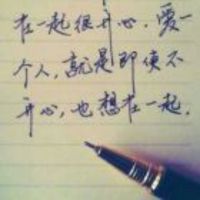 在一起很开心。爱一
个人，就是即使不
开心，也想在一起。